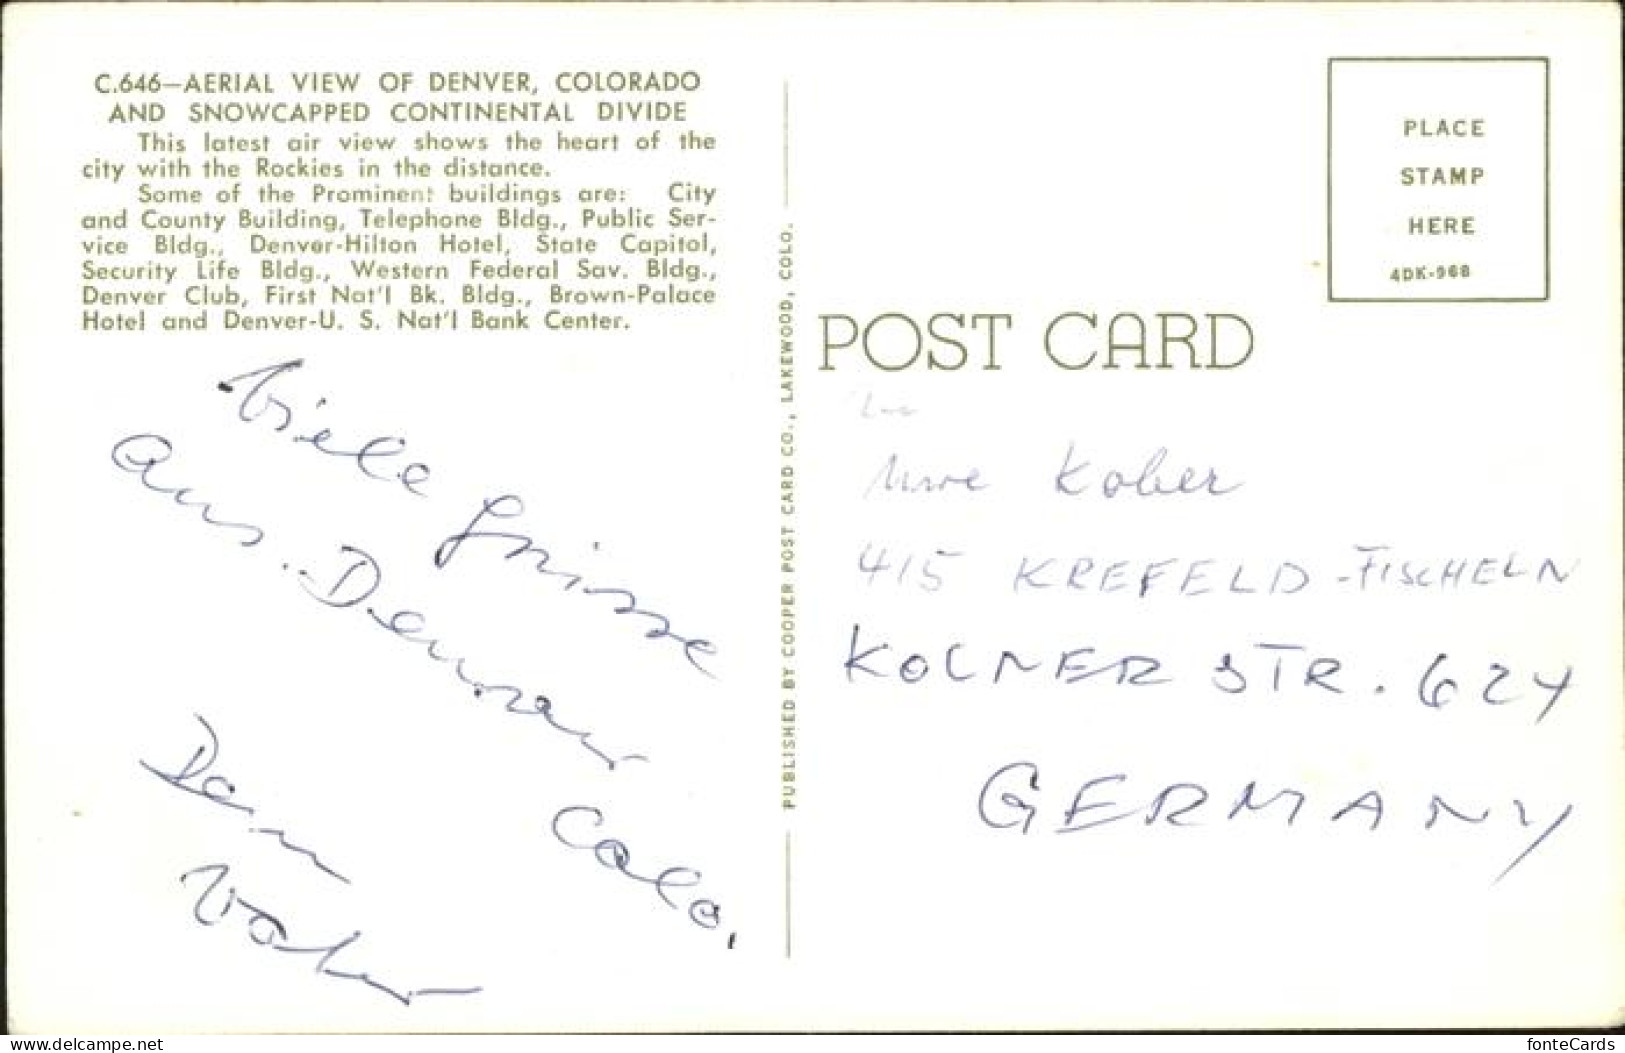 C.646—AERIAL VIEW OF DENVER, COLORADO
AND SNOWCAPPED CONTINENTAL DIVIDE
This latest air view shows the heart of the
city with the Rockies in the distance.
Some of the Prominent buildings are: City
and County Building, Telephone Bldg., Public Ser-
vice Bldg., Denver-Hilton Hotel, State Capitol,
Security Life Bldg., Western Federal Sav. Bldg.,
Denver Club, First Nat'l Bk. Bldg., Brown-Palace
Hotel and Denver-U. S. Nat'l Bank Center.
Viele Grüsse
Aus. Denver
Colo.
Dein
Vater
PUBLISHED BY COOPER POST CARD CO., LAKEWOOD, COLO.
PLACE
STAMP
HERE
4DK-968
POST CARD
Uwe Kober
415 KREFELD-FISCHELN
KOLNER STR. 624
GERMANY
delcampe.net
fonteCards